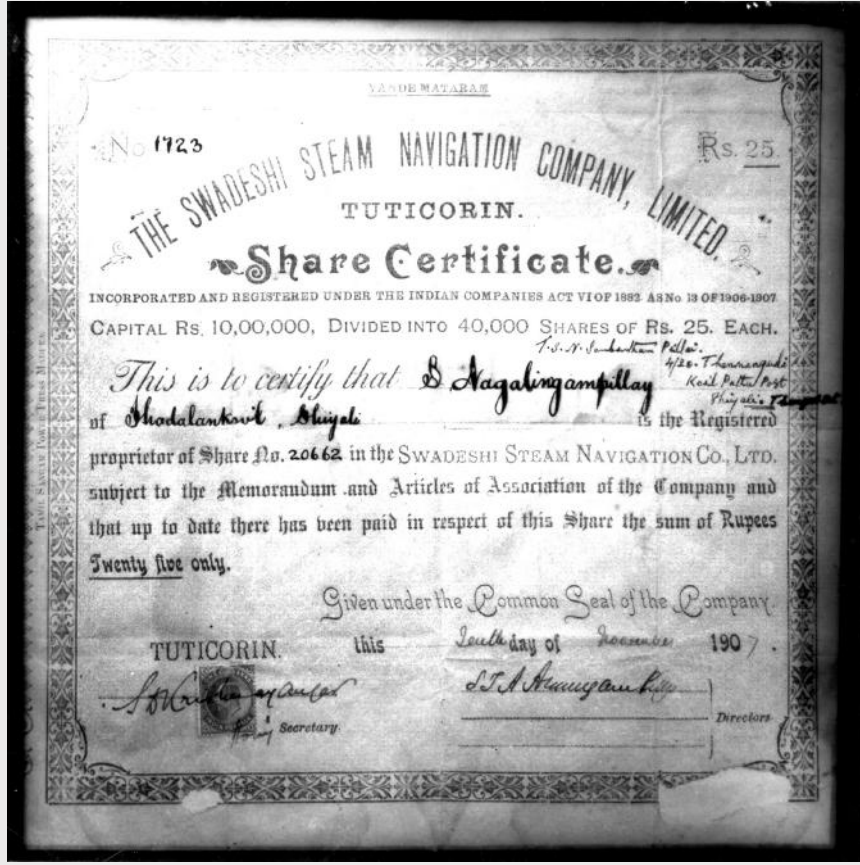 VANDE MATARAM
No 1723
Rs. 25
THE SWADESHI STEAM NAVIGATION COMPANY, LIMITED.
TUTICORIN.
Share Certificate.
INCORPORATED AND REGISTERED UNDER THE INDIAN COMPANIES ACT VI OF 1882 AS No 13 OF 1906-1907
CAPITAL RS. 10,00,000, DIVIDED INTO 40,000 SHARES OF RS. 25. EACH.
T. S. N. Sambanthan Pillai.
4/28. Thennangudi
Koil Pattu Post
Shiyali.
This is to certify that S Nagalingampillay
of Thadalankovil, Shiyali is the Registered
proprietor of Share No. 20662 in the SWADESHI STEAM NAVIGATION CO., LTD.
subject to the Memorandum and Articles of Association of the Company and
that up to date there has been paid in respect of this Share the sum of Rupees
Twenty five only.
Given under the Common Seal of the Company.
TUTICORIN. this Tenth day of November 1907.
Secretary.
Directors